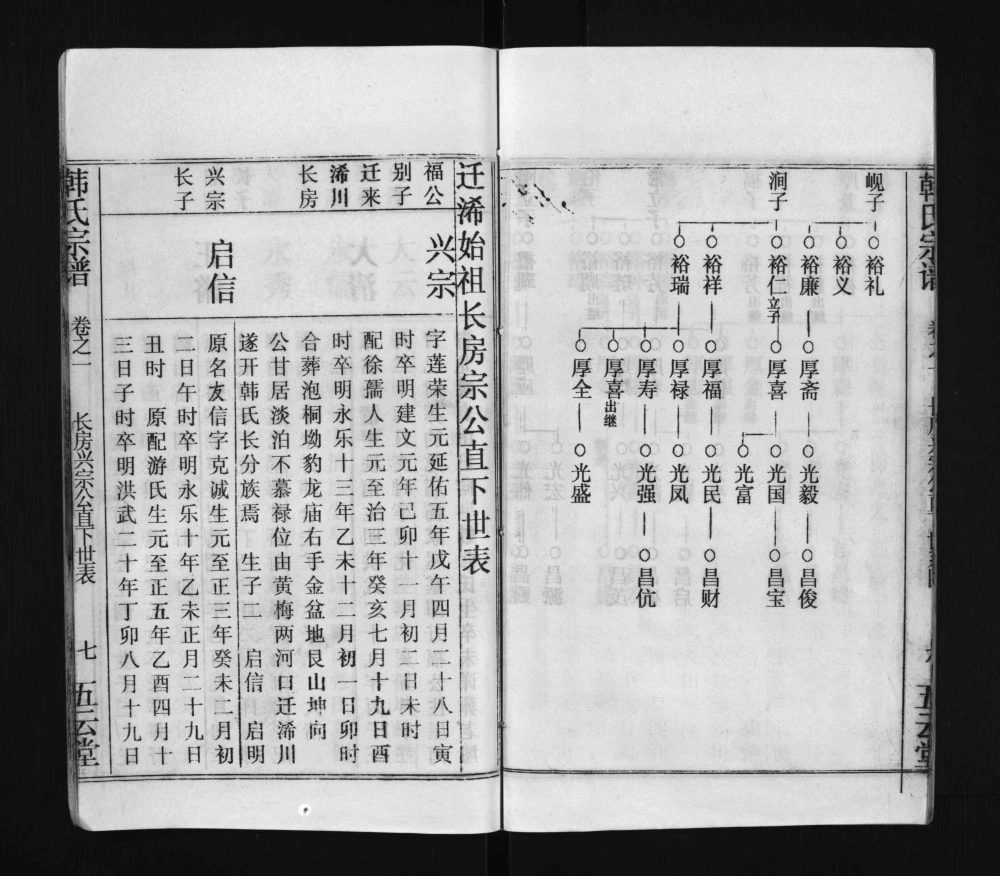 韩氏宗谱
五云堂
岘子
裕礼
裕义
涧子
裕廉
厚斋
光毅
昌俊
裕仁立子
厚喜
光国
昌宝
光富
裕祥
厚福
光民
昌财
裕瑞
厚禄
光凤
厚寿
光强
昌伉
厚喜出继
厚全
光盛
迁浠始祖长房宗公直下世表
福公
别子
迁来
浠川
长房
兴宗
字莲荣生元延佑五年戊午四月二十八日寅
时卒明建文元年己卯十一月初二日未时
配徐孺人生元至治三年癸亥七月十九日酉
时卒明永乐十三年乙未十二月初一日卯时
合葬泡桐坳豹龙庙右手金盆地艮山坤向
公甘居淡泊不慕禄位由黄梅两河口迁浠川
遂开韩氏长分族焉 生子二 启信 启明
兴宗
长子
启信
原名友信字克诚生元至正三年癸未二月初
二日午时卒明永乐十年乙未正月二十九日
丑时 原配游氏生元至正五年乙酉四月十
三日子时卒明洪武二十年丁卯八月十九日
韩氏宗谱
卷之一
长房兴宗公直下世表
七
五云堂